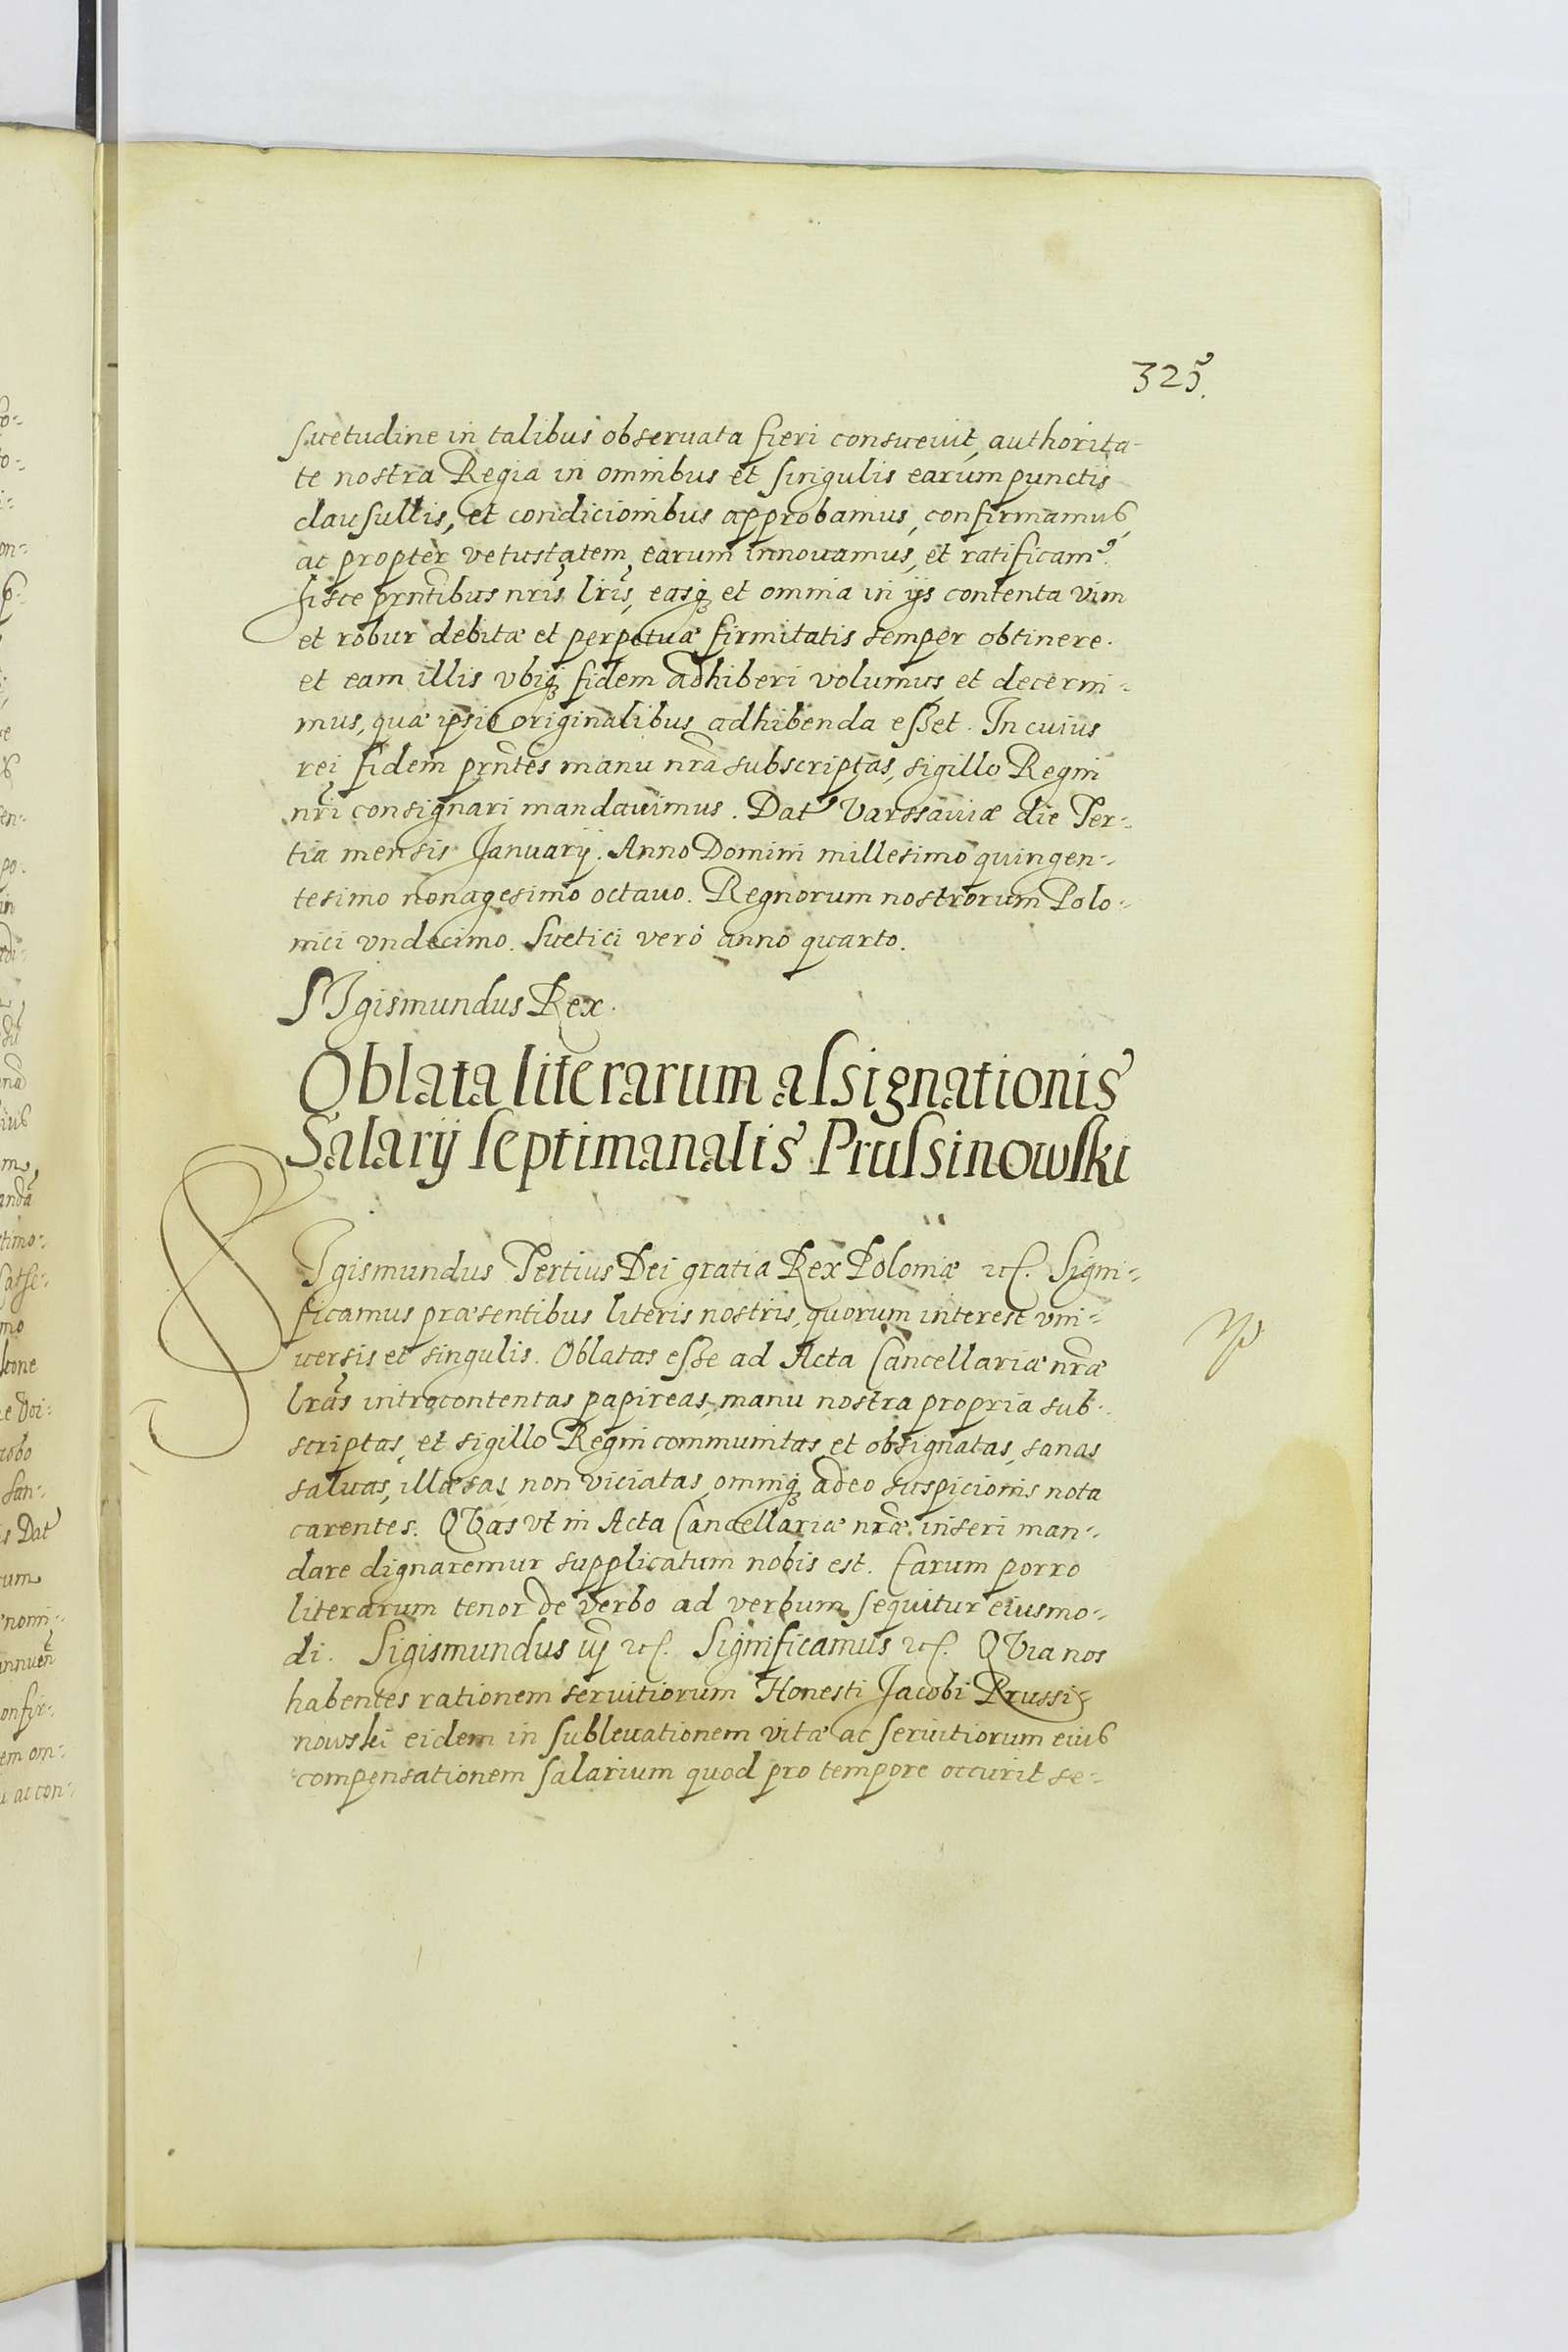 325.
suetudine in talibus obseruata fieri consueuit, authorita-
te nostra Regia in omnibus et singulis earum punctis
clausullis, et condicionibus approbamus, confirmamus,
ac propter vetustatem earum innouamus, et ratificam9.
hisce prntibus nris lris, easq et omnia in ijs contenta vim
et robur debitæ et perpetuæ firmitatis semper obtinere.
et eam illis vbiq fidem adhiberi volumus et decerni-
mus, quæ ipsis originalibus adhibenda esset. In cuius
rei fidem prntes manu nra subscriptas, sigillo Regni
nri consignari mandauimus. Dat Varssauiæ die Ter-
tia mensis Januarij. Anno Domini millesimo quingen-
tesimo nonagesimo octauo. Regnorum nostrorum Polo-
nici vndecimo. Suetici vero anno quarto.
SIgismundus Rex.
Oblata literarum assignationis
Salarij septimanalis Prussinowski
SIgismundus Tertius Dei gratia Rex Poloniæ etc. Signi-
ficamus præsentibus literis nostris, quorum interest vni-
uersis et singulis. Oblatas esse ad Acta Cancellariæ nræ
lras introcontentas papireas, manu nostra propria sub-
scriptas, et sigillo Regni communitas et obsignatas, sanas
saluas, illæsas, non viciatas, omniq adeo suspicionis nota
carentes. QVas vt in Acta Cancellariæ nræ inseri man-
dare dignaremur supplicatum nobis est. Earum porro
literarum tenor de verbo ad verbum sequitur eiusmo-
di. Sigismundus iij etc. Significamus etc. QVia nos
habentes rationem seruitiorum Honesti Jacobi Prussi-
nowski eidem in subleuationem vitæ ac seruitiorum eius
compensationem salarium quod pro tempore occurit se-